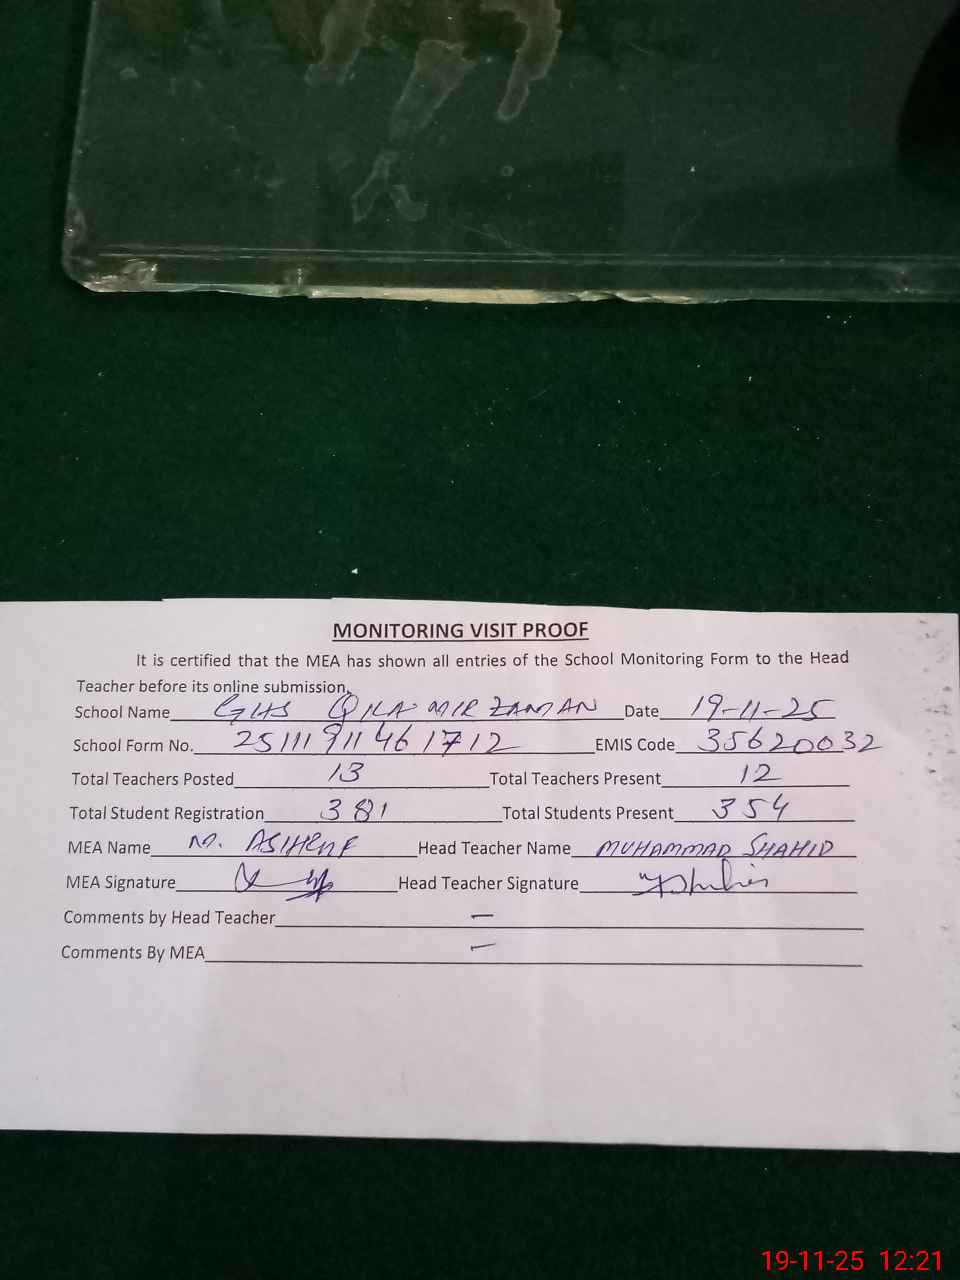 MONITORING VISIT PROOF
It is certified that the MEA has shown all entries of the School Monitoring Form to the Head
Teacher before its online submission.
School Name GHS QILA MIR ZAMAN Date 19-11-25
School Form No. 25111911461712 EMIS Code 35620032
Total Teachers Posted 13 Total Teachers Present 12
Total Student Registration 381 Total Students Present 354
MEA Name M. Head Teacher Name MUHAMMAD SHAHID
MEA Signature Head Teacher Signature
Comments by Head Teacher —
Comments By MEA —
19-11-25 12:21